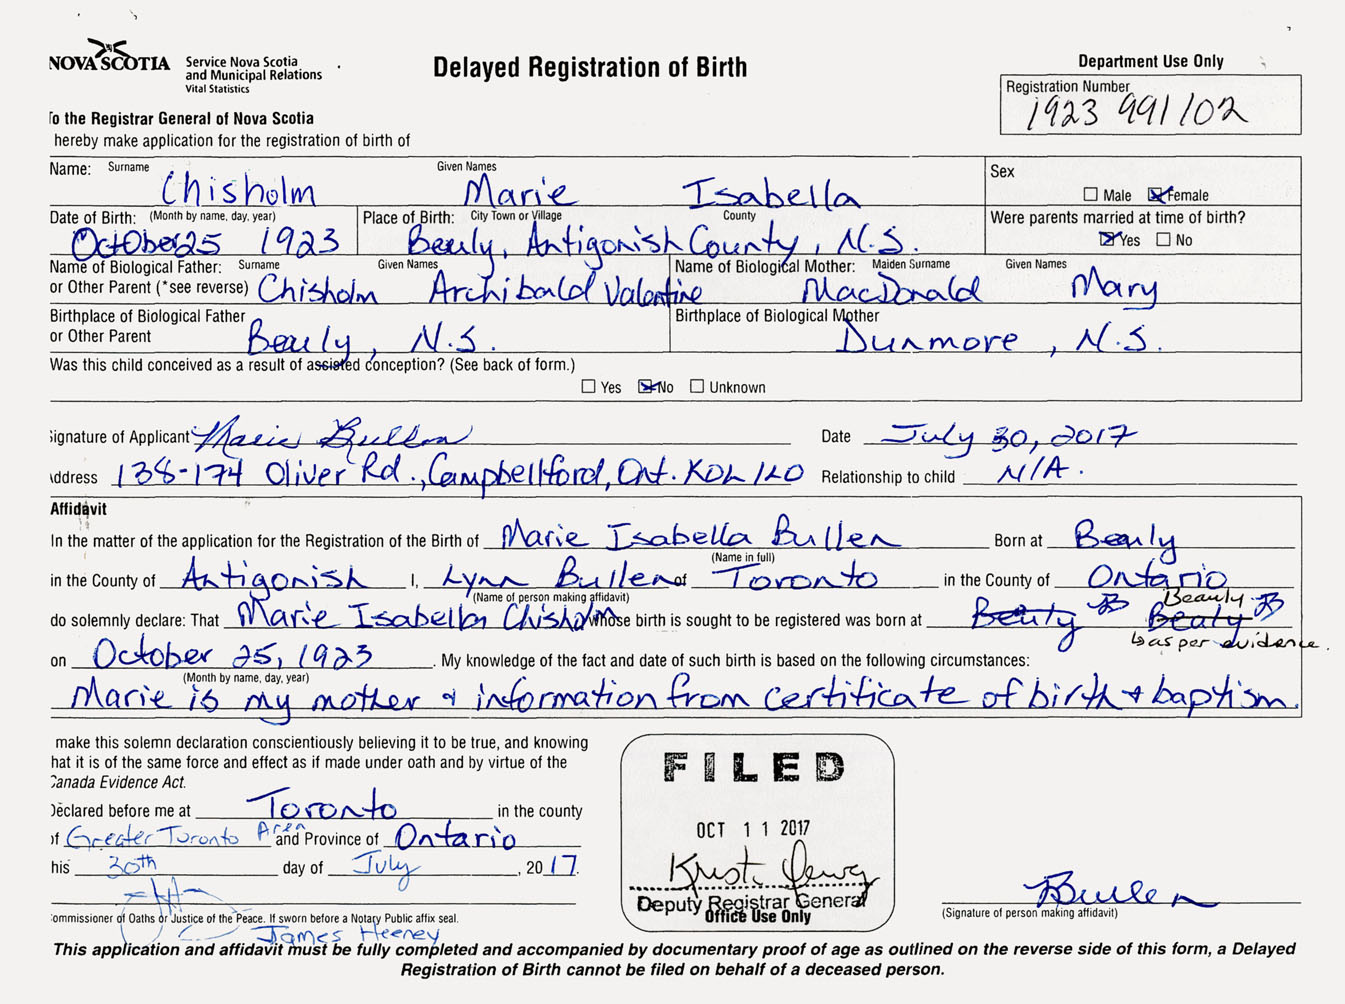 NOVA SCOTIA
Service Nova Scotia
and Municipal Relations
Vital Statistics
Delayed Registration of Birth
Department Use Only
Registration Number
1923 991102
To the Registrar General of Nova Scotia
hereby make application for the registration of birth of
Name: Surname Chisholm Given Names Marie Isabella
Sex
Male Female
Date of Birth: (Month by name, day, year) October 25 1923
Place of Birth: City Town or Village County Beauly, Antigonish County, N.S.
Were parents married at time of birth?
Yes No
Name of Biological Father: Surname Given Names
or Other Parent (*see reverse) Chisholm Archibald Valentine
Name of Biological Mother: Maiden Surname Given Names
MacDonald Mary
Birthplace of Biological Father
or Other Parent Beauly, N.S.
Birthplace of Biological Mother
Dunmore, N.S.
Was this child conceived as a result of assisted conception? (See back of form.)
Yes No Unknown
Signature of Applicant Marie Bullen Date July 30, 2017
Address 138-174 Oliver Rd., Campbellford, Ont. K0L 1L0 Relationship to child N/A.
Affidavit
In the matter of the application for the Registration of the Birth of Marie Isabella Bullen Born at Beauly
(Name in full)
in the County of Antigonish I, Lynn Bullen of Toronto in the County of Ontario
(Name of person making affidavit)
Beauly
do solemnly declare: That Marie Isabella Chisholm whose birth is sought to be registered was born at
as per evidence.
on October 25, 1923. My knowledge of the fact and date of such birth is based on the following circumstances:
(Month by name, day, year)
Marie is my mother & information from certificate of birth & baptism.
make this solemn declaration conscientiously believing it to be true, and knowing
hat it is of the same force and effect as if made under oath and by virtue of the
Canada Evidence Act.
Declared before me at Toronto in the county
of Greater Toronto Area and Province of Ontario
his 30th day of July, 2017.
Commissioner of Oaths or Justice of the Peace. If sworn before a Notary Public affix seal.
James Heeney
FILED
OCT 11 2017
Deputy Registrar General
Office Use Only
Bullen
(Signature of person making affidavit)
This application and affidavit must be fully completed and accompanied by documentary proof of age as outlined on the reverse side of this form, a Delayed
Registration of Birth cannot be filed on behalf of a deceased person.